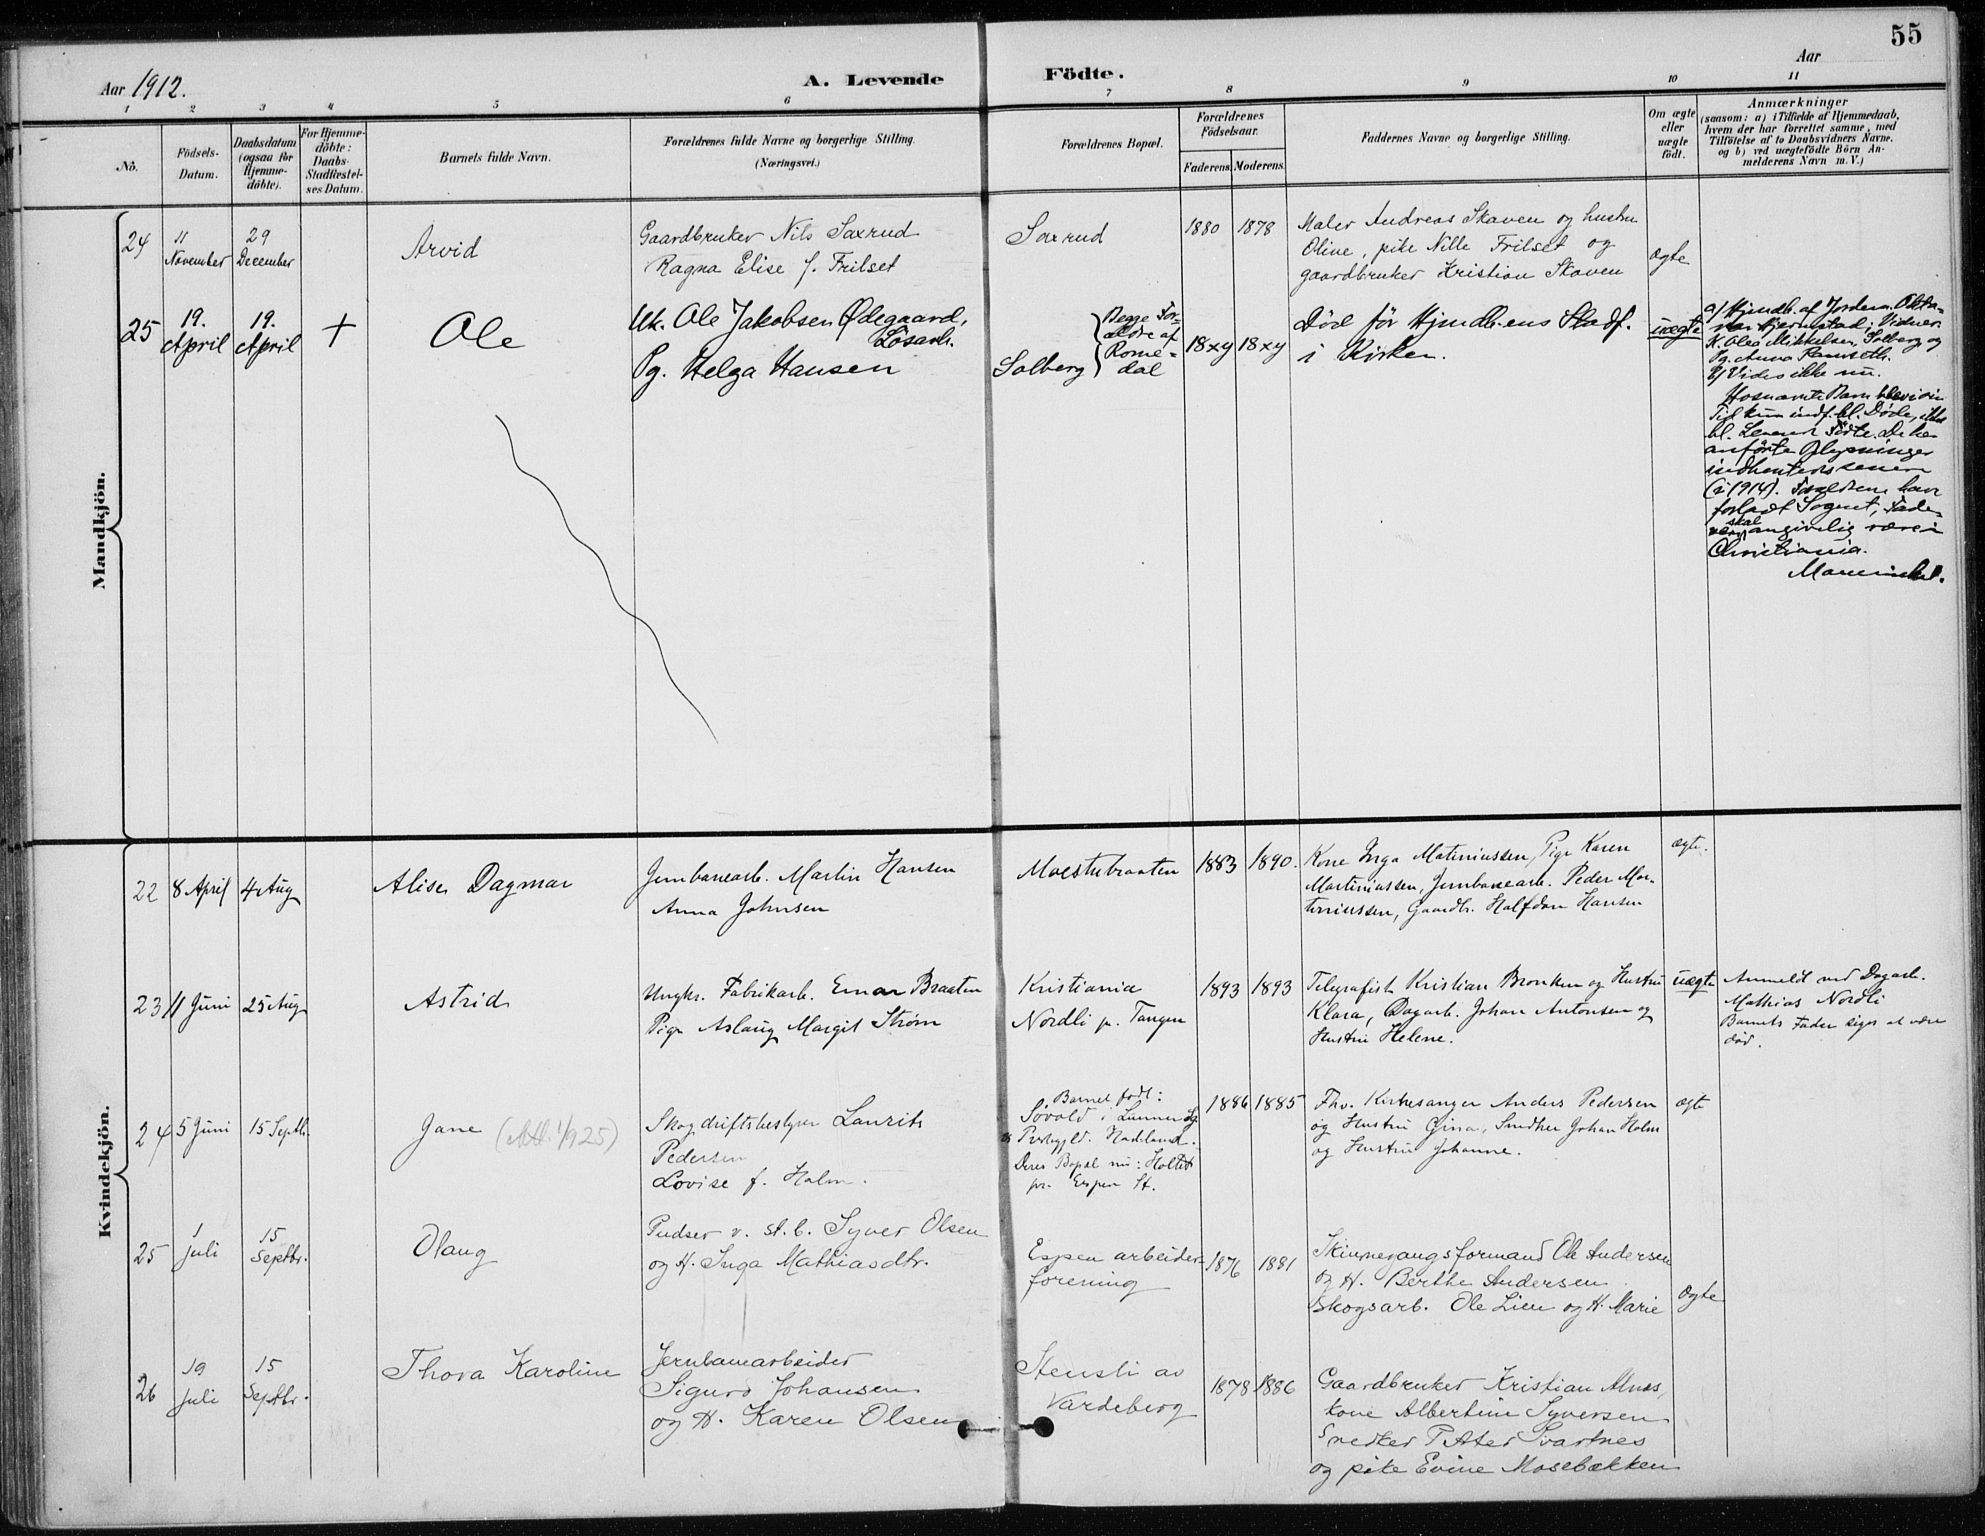 55
Aar 1912.
A. Levende Födte.
Aar
1 2 3 4 5 6 7 8 9 10 11
No.
Födsels-
Datum.
Daabsdatum
(ogsaa for
Hjemme-
döbte).
For Hjemme-
döbte:
Daabs-
Stadfæstel-
ses Datum.
Barnets fulde Navn.
Forældrenes fulde Navne og borgerlige Stilling.
(Næringsvei.)
Forældrenes Bopæl.
Forældrenes
Födselsaar.
Faderens. Moderens.
Faddernes Navne og borgerlige Stilling.
Om ægte
eller
uægte
født.
Anmærkninger
(saasom: a) i Tilfælde af Hjemmedaab,
hvem der har forrettet samme, med
Tilföielse af to Daabsvidners Navne.
og b) ved uægtefödte Börn An-
melderens Navn m. V.)
Mandkjön.
24
11
November
29
December
Arvid
Gaardbruker Nils Saxrud
Ragna Elise f. Frilset
Saxrud
1880 1878
Maler Andreas Skaven og hustru
Olive, pike Nille Frilset og
gaardbruker Kristian Skaven
ægte
25
19.
April
19.
April
+
Ole
Uk. Ole Jakobsen Ødegaard,
Løsarb.
Pg. Helga Hansen
Solberg
Begge For-
ældre af
Rome-
dal
18xy 18xy
Død før Hjmdb.ens Stadf.
i Kirken.
uægte
a) Hjmdb. af Jordem.
Hjernstad; Vidner:
K. Olea Mikkelsen, Solberg og
Pg. Anna Ramseth.
b) Vides ikke nu.
Barn blev i sin
Tid kun indf. bl. Døde, ikke
bl. Levende Födte. De her
anførte Oplysninger
indhentedes senere
(i 1914). Forældrene have
forladt Sognet, Fade-
ren skal angivelig være i
Christiania.
Kvindekjön.
22
8 April
4 Aug
Alise Dagmar
Jernbanearb. Martin Hansen
Anna Johnsen
Moestubraaten
1883 1890.
Kone Inga Matiniussen, Pige Karen
Martiniussen, Jernbanearb. Peder Mar-
tiniussen, Gaardbr. Halfdan Hansen
ægte.
23
11 Juni
25 Aug
Astrid
Ungkr. Fabrikarb. Einar Braaten
Pige Aslaug Margit Strøm
Kristiania
Nordli p. Tangen
1893 1893
Telegrafist Kristian Bronken og Hustru
Klara, Dagarb. Johan Antonsen og
Hustru Helene.
uægte
Anmeldt ved Dagarb.
Mathias Nordli
Barnets Fader siges at være
død.
24
5 Juni
15 Septb.
Jane
Skogdriftsbestyrer Laurits
Pedersen
Lovise f. Holm.
Barnet født:
Søvold i Lunner Sg.
Prestegjld. Hadeland.
Deres Bopæl nu: Holtet
pr. Espen St.
1886 1885
Fhv. Kirkesanger Anders Pedersen
og Hustru Gina, Snedker Johan Holm
og Hustru Johanne.
ægte
25
1
juli
15
Septbr.
Olaug
Pudser v. st. b. Syver Olsen
og H. Inga Mathiasdtr.
Espen arbeider-
forening
1876 1881
Skinnegangsformand Ole Andersen
og H. Berthe Andersen
Skogsarb. Ole Lien og H. Marie
ægte
26
19
juli
15
Septbr.
Thora Karoline
Jernbanearbeider
Sigurd Johansen
og H. Karen Olsen
Stensli av
Vardeberg
1878 1886
Gaardbruker Kristian Alnæs,
kone Albertine Syversen
Snedker Petter Svartnes
og pike Evine Mosebækken